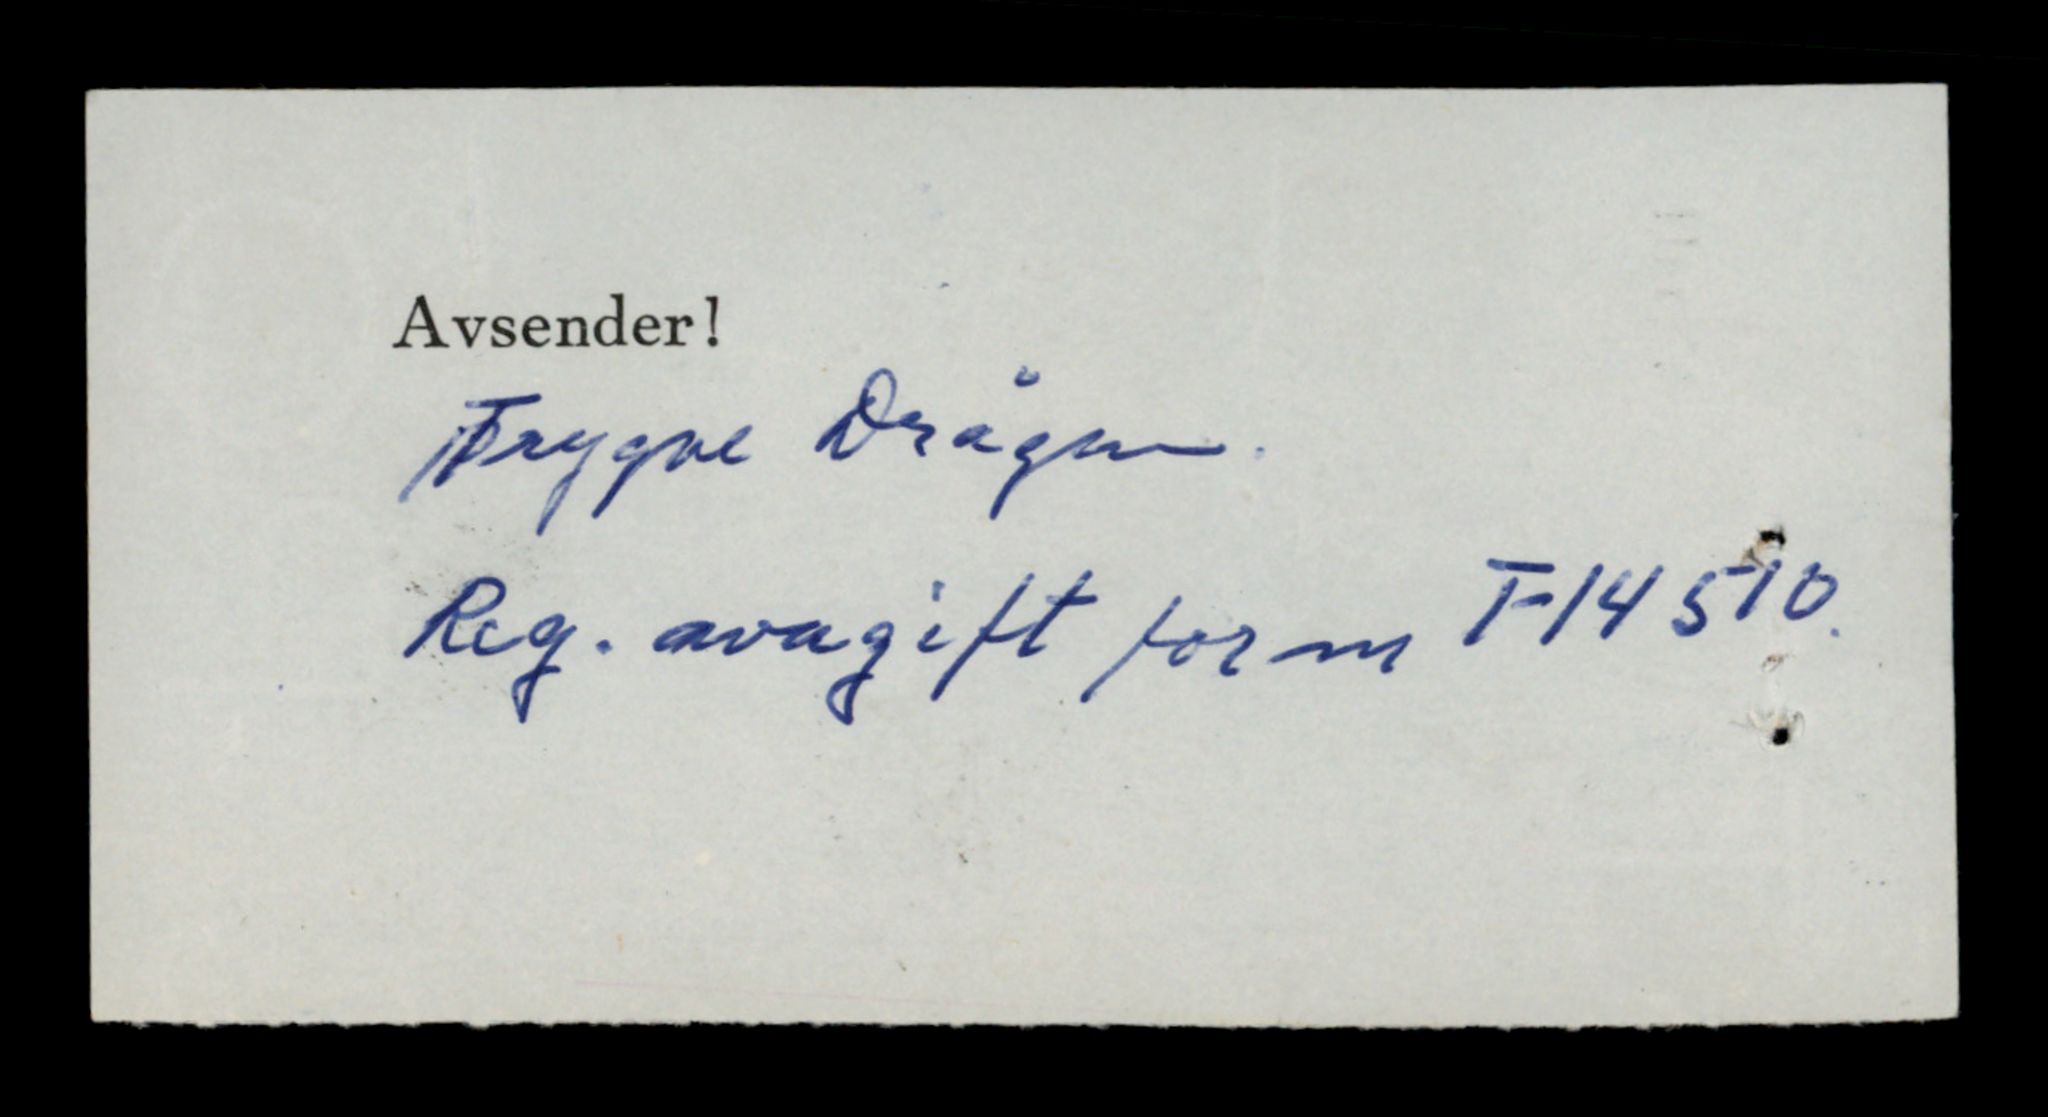 Avsender!
Trygve Drågen.
Reg. avagift for m T-14510.